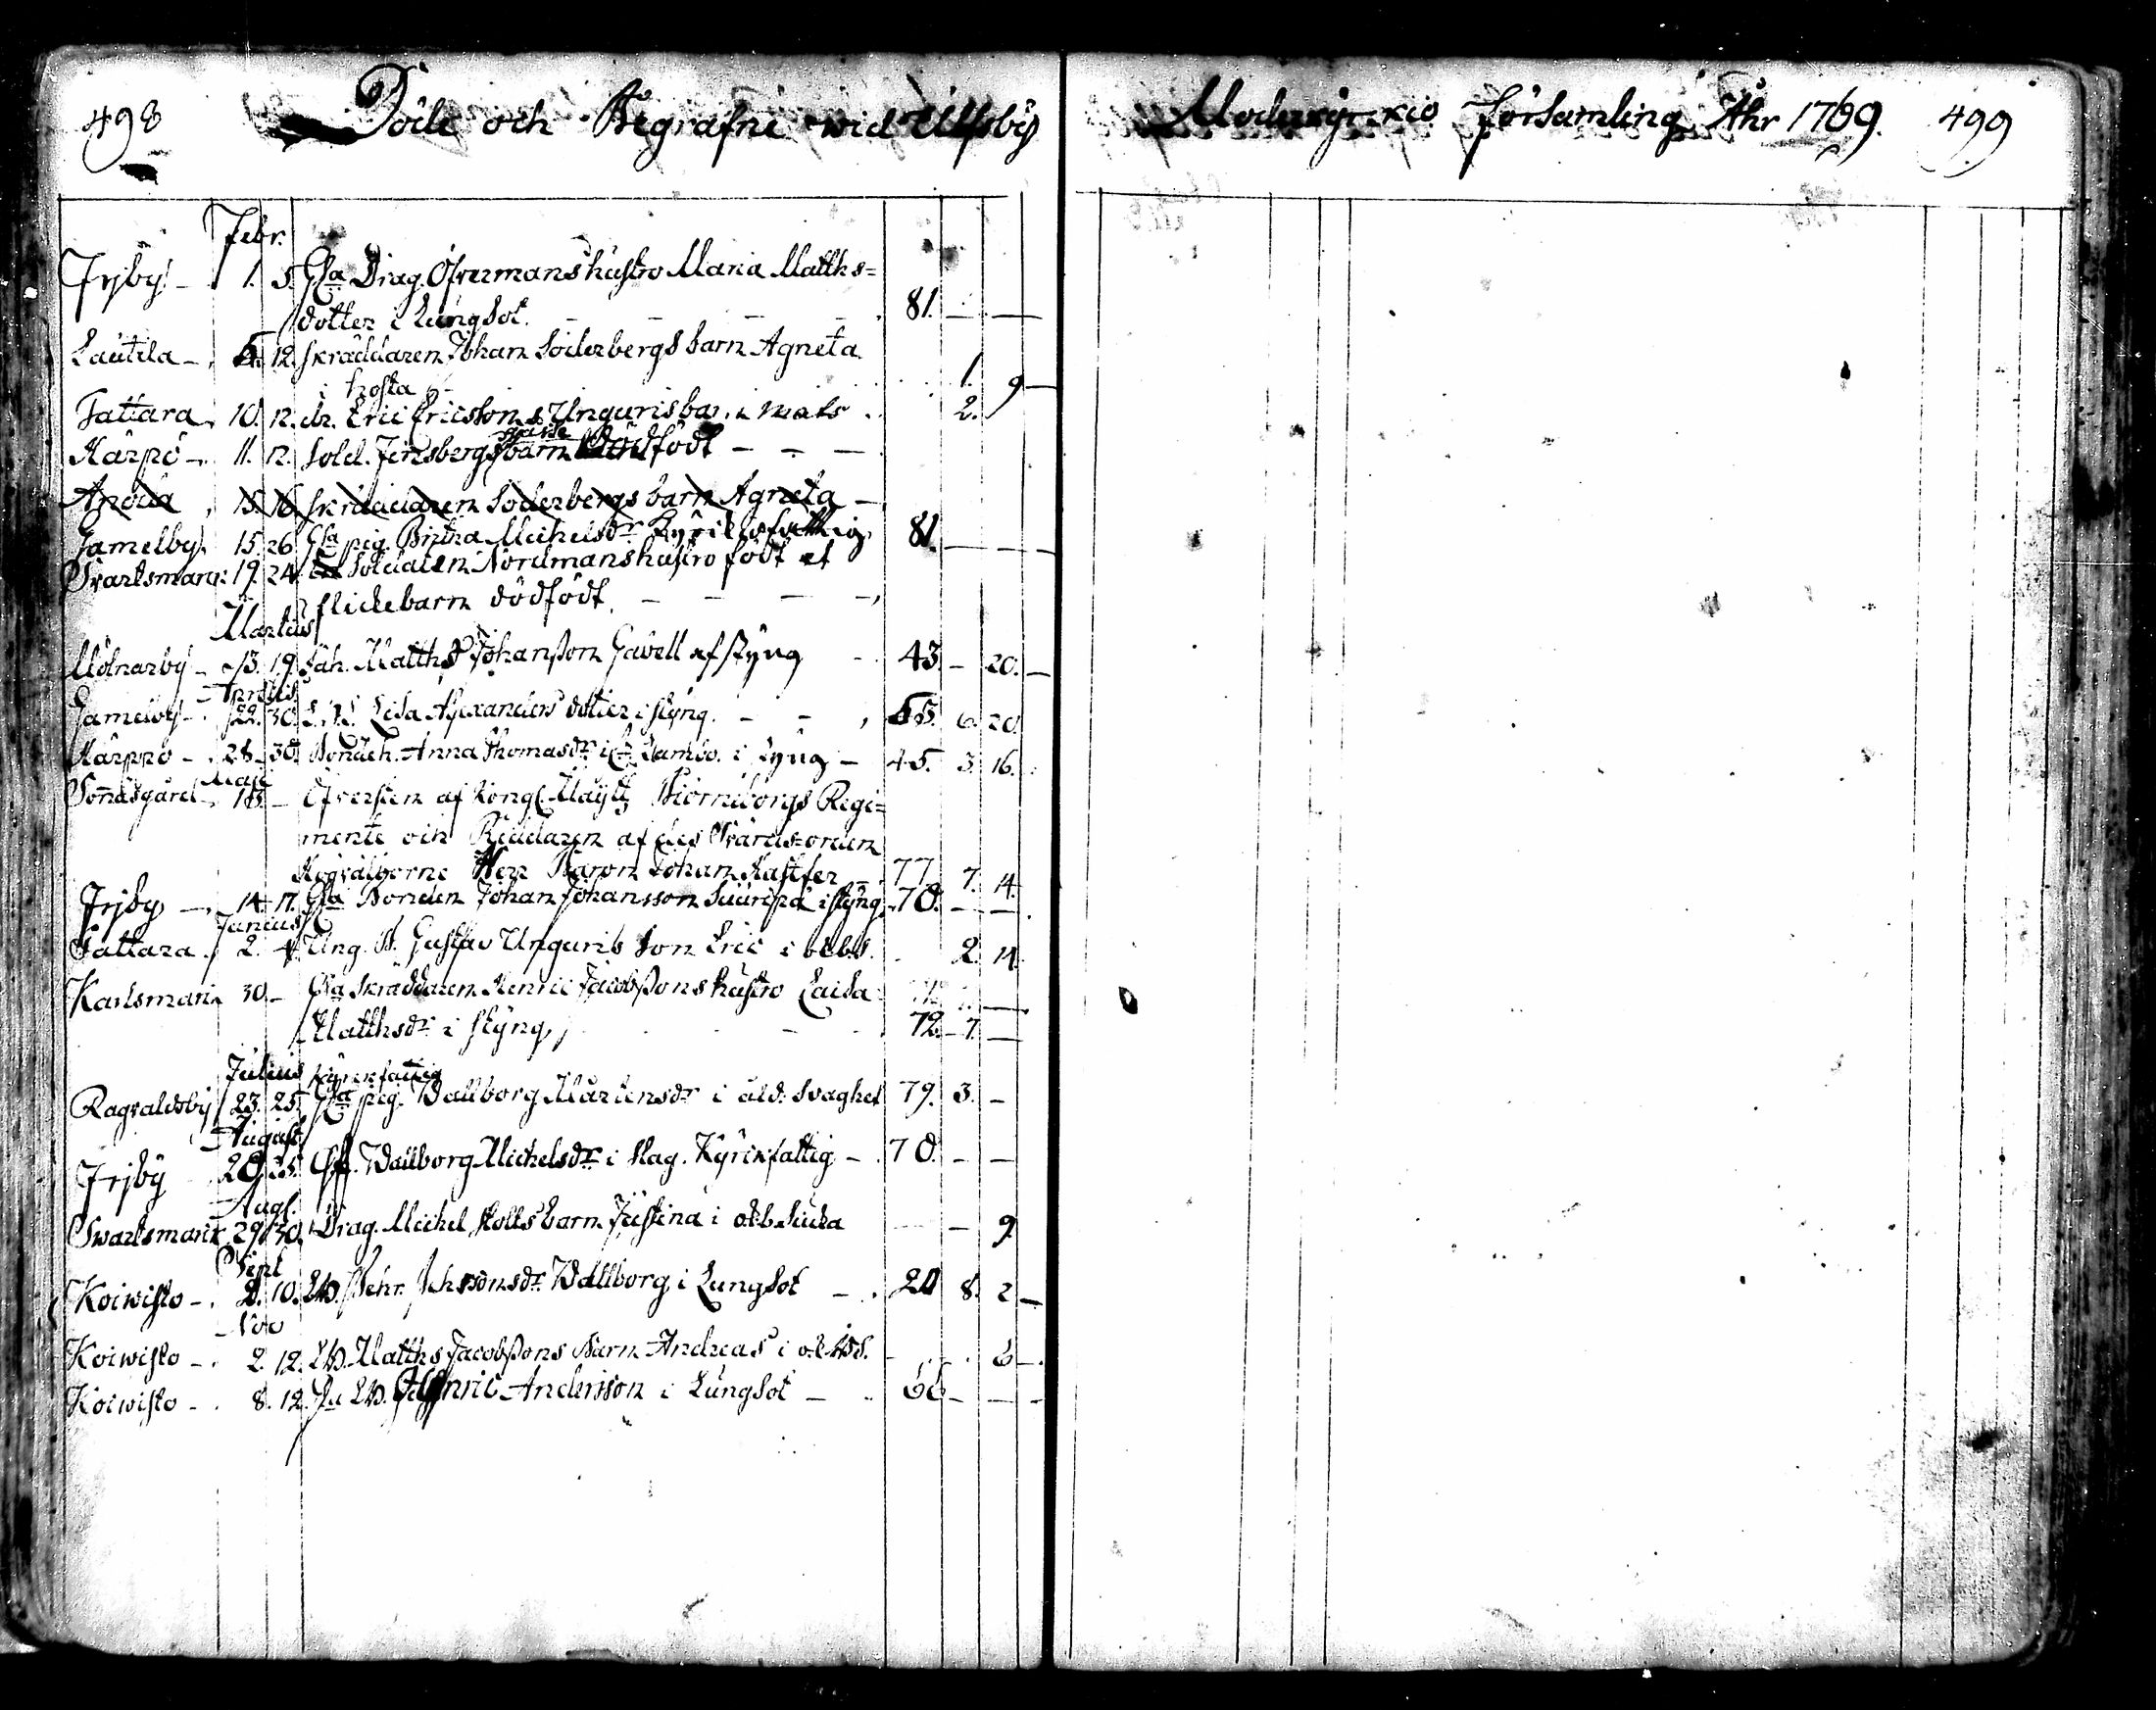 498 Döde och Begrafne wid Ulfsby Moderkyrkio Församling Åhr 1769. 499
Febr.
Irjby - 1. 5. Gla Drag. Öfvermans hustro Maria Matths=
dotter i Lungsot. - - - 81. - -
Lautila - 5. 12. Skräddaren Johan Söderbergs barn Agneta
i hosta 1. 9 -
Tattara 10. 12. dr. Eric Ericssons Unguris bar. 2.
Kärpö - 11. 12. Sold. barn dödfödt - - -
15. 16. Skräddaren Söderbergs barn Agneta -
Gamelby 15 26 Gla pig. Britha Michelsdr Kyrikofattig 81. - - -
Svartsmark 19. 24. Soldaten Nordmans hustro födt et
flickebarn dödfödt. - - -
Martius
Mölnarby - 13. 19. Matths Johansson Gavell af styng - 43. - 20. -
Aprilis
Gamelby - 22. 30. Lisa Alexanders dotter i styng. - - 55. 6. 20.
Kärppö - 28. 30. Anna Thomasdr i styng - 45. 3. 16.
Maji
Sonnäsgård - 18. - Öfversten af Kongl. Maytz Biörneborgs Regi=
mente och Riddaren af des Svärds=orden
Högvälborne Herr Baron Johan - 77 7. 14.
Irjby - 14. 17. Gla Bonden Johan Johansson i styng 70. - -
Junius
Tattara 2. 4 Ung. B. Gustav Unguris Son Eric i 2. 14.
Karlsmark 30. - Gla Skräddaren Henric Jacobssons hustro Caisa
Matthsdr i styng, - - 72. 7. -
Julius Kyrckfattig
Ragvaldsby 23. 25. Gla pig. Wallborg Mårtensdr i åld. svaghet 79. 3. -
August.
Irjby 20. 25. Wallborg Michelsdr i slag. Kyrckfattig - 70. - -
Aug.
Swartsmark 29. 30. Drag. Michel Stolts barn Justina i - 9.
Sept
Koiwisto - 2. 10. Wallborg i Lungsot - 20 8. 2 -
Nov
Koiwisto - 2. 12. Matths Jacobssons Barn Andreas i 6 -
Koiwisto - 8. 12. Henric Andersson i Lungsot - 66 - - -